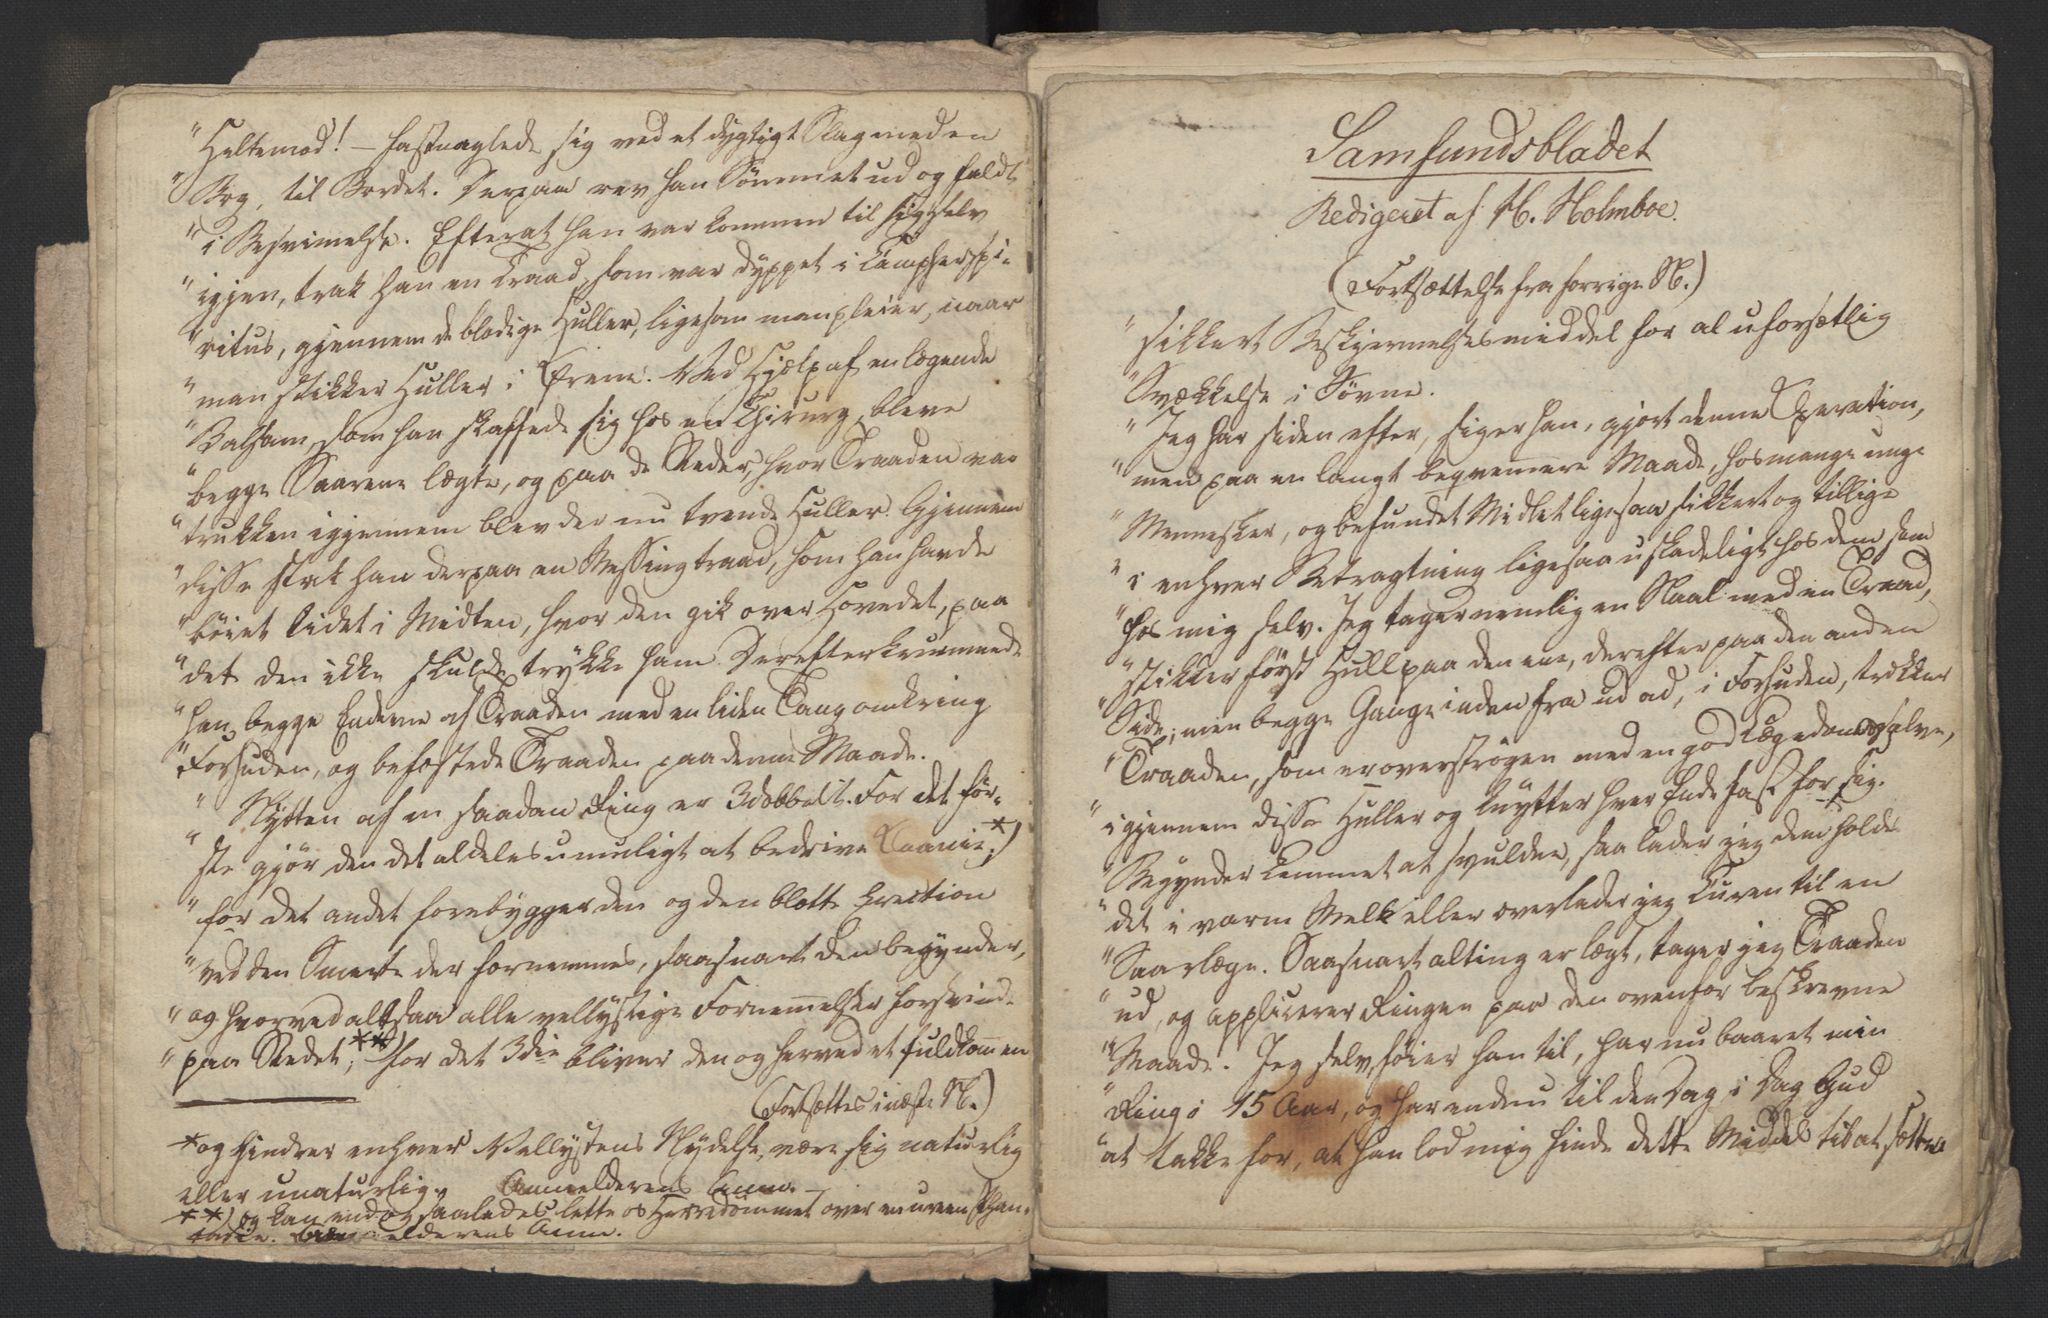 "Heltemod! — fastnaglede sig ved et dygtigt Slag med en
"Bog, til Bordet. Derpaa rev han Sömmet ud og faldt
"i Besvimelse. Efterat han var kommen til sig selv
"igjen, trak han en Traad, som var dyppet i Campherspi-
"ritus, gjennem de blodige Huller, ligesom man pleier, naar
"man stikker Huller i Örene. Ved Hjælp af en lægende
"Balsam, som han skaffede sig hos en Chirurg, bleve
"begge Saarene lægte, og paa de Steder, hvor Traaden var
"trukken igjennem blev der nu tvende Huller. Gjennem
"disse stak han derpaa en Messingtraad, som han havde
"böiet lidet i Midten, hvor den gik over Hovedet, paa
"det den ikke skulde trykke ham. Derefter krummede
"han begge Enderne af Traaden med en liden Tang omkring
"Forhuden, og befæstede Traaden paa denne Maade.
" Nytten af en saadan Ring er 3dobbelt. For det för-
" ste gjör den det aldeles umuligt at bedrive Onanie;*)
"for det andet forebygger den og den blotte Erection
"ved den Smerte der fornemmes, saasnart den begynder,
"og hvorved altsaa alle vellystige Fornemmelser forsvinde
"paa Stedet;**) for det 3die bliver den og herved et fuldkommen
(Fortsættes i næste N.)
*og hindrer enhver Vellystens Nydelse, være sig naturlig
eller unaturlig. Anmelderens Anm. —
**) og kan endog saaledes lette os Herredömmet over en ureen Phan-
tasie. Anmelderens Anm.
Samfundsbladet
Redigeret af H. Holmboe.
(Fortsættelse fra forrige N.)
" sikkert Beskjermelsesmiddel for al uforsætlig
"Svækkelse i Sövne.
"Jeg har siden efter, siger han, gjort denne Operation,
"men paa en langt beqvemmere Maade, hos mange unge
"Mennesker, og befundet Midlet ligesaa sikkert og tillige
"i enhver Betragtning ligesaa uskadeligt hos dem som
"hos mig selv. Jeg tager nemlig en Naal med en Traad,
"stikker först Hull paa den ene, derefter paa den anden
"Side, men begge Gange inden fra ud ad, i Forhuden, trækker
"Traaden, som er overströgen med en god Lægedomssalve,
"igjennem disse Huller og knytter hver Ende fast for sig.
"Begynder Lemmet at svulde, saa lader jeg dem holde
"det i varm Melk eller overlader jeg Curen til en
"Saarlæge. Saasnart alting er lægt, tager jeg Traaden
"ud, og applicerer Ringen paa den ovenfor beskrevne
"Maade. Jeg selv, föier han til, har nu baaret min
"Ring i 15 Aar, og har endnu til den Dag i Dag Gud
"at takke for, at han lod mig finde dette Middel til at sætte